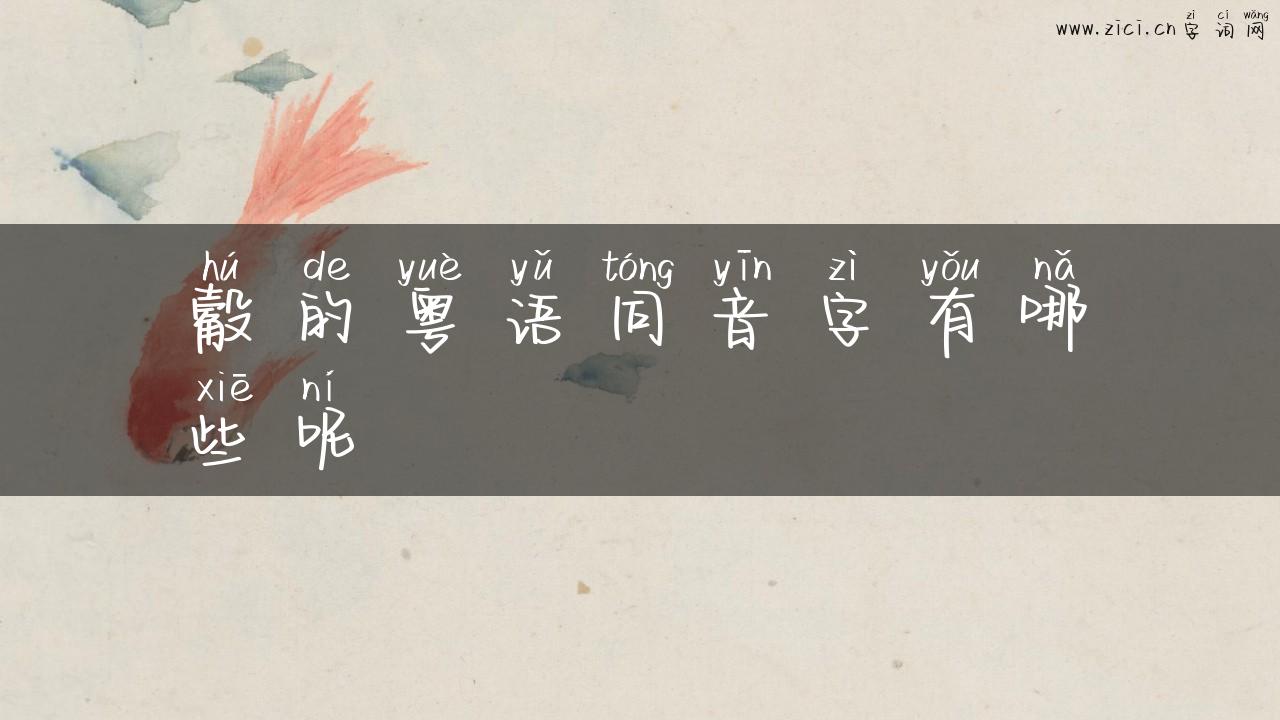 www.zici.cn
zì cí wǎng
字词网
hú de yuè yǔ tóng yīn zì yǒu nǎ
觳的粤语同音字有哪
xiē ní
些呢